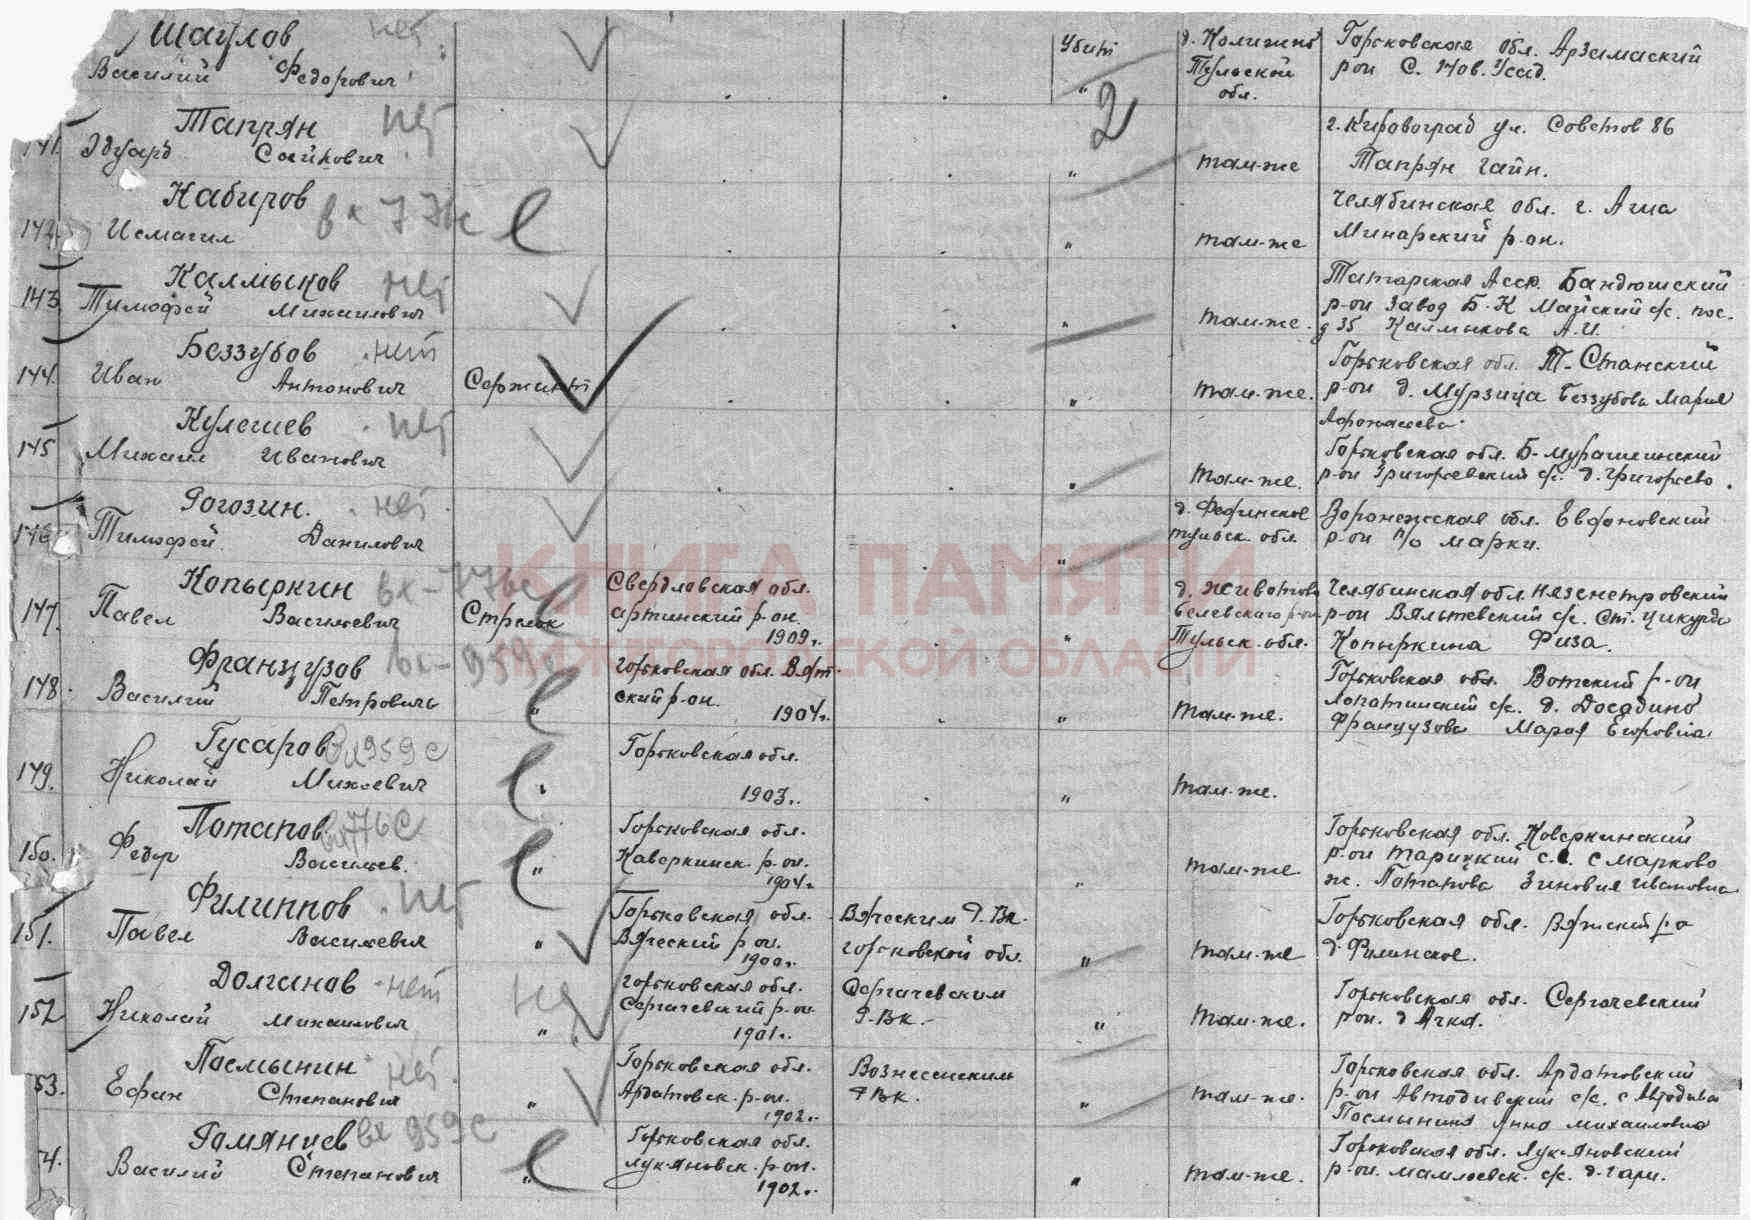 Шаулов нет
Василий Федорович
Убит
"
2
д. Калижна
Тульской
обл.
Горьковская обл. Арзамаский
р-он С. Нов. Усад.
141. Тапрян нет
Эдуард
"
там-же
г. Кировоград ул. Советов 86
Тапрян Гайн.
142. Кабиров вх 776с
Исмагил
"
там-же
Челябинская обл. г. Аша
Минарский р-он.
143. Калмыков нет
Тимофей Михаилович
"
там-же.
Татарская Асср. Бандюшский
р-он Завод Б-К Майский с/с. пос.
д 35 Калмыкова А.И.
144. Беззубов нет
Иван Антонович
Сержант
"
там-же.
Горьковская обл. П-Станский
р-он д. Мурзица Беззубова Мария
Афонасиева
145 Кулешев нет
Михаил Иванович
"
там-же.
Горьковская обл. Б-Мурашкинский
р-он Григорьевский с/с. д. Григорьево.
146 Рогозин. нет
Тимофей Данилович
"
д. Федянское
тульск. обл.
Воронежская обл. Евдановский
р-он п/о Марки.
147. Копыркин вх-776с
Павел Васильевич
Стрелок
Свердловская обл.
артинский р-он.
1909г.
"
д. Животово
Белевского р-он
Тульск. обл.
Челябинская обл. Нязепетровский
р-он с/с. ст.
Копыркина Физа.
148. Французов вх-959с
Василий Петрович
"
Горьковская обл. Вят-
ский р-он.
1904г.
"
там-же.
Горьковская обл. Вотский р-он
Лопатинский с/с. д. Досадино
Французова Мария Егоровна
149. Гусаров вх959с
Николай Михеевич
"
Горьковская обл.
1903г.
"
там-же.
150. Потапов вх776с
Федор Васильев.
"
Горьковская обл.
Каверкинск. р-он.
1904г
"
там-же
Горьковская обл. Коверкинский
р-он Тарицкий с.с. с Марково
ж. Потапова Зиновия Ивановна
151. Филиппов нет
Павел Васильевич
"
Горьковская обл.
Вяческий р-он.
1900г.
Вяческим Р.Вк.
горьковской обл.
"
там-же
Горьковская обл. Вяжский р-о
д. Филинское.
152 Долганов нет
Николай Михаилович
"
Горьковская обл.
Сергачевский р-он.
1901г.
Сергачевским
Р-Вк.
"
там-же.
Горьковская обл. Сергачевский
р-он. д Ачка.
53. Пасмынин нет
Ефим Степанович
"
Горьковская обл.
Ардатовск. р-он.
1902г.
Вознесенским
РВк.
"
там-же.
Горьковская обл. Ардатовский
р-он с/с. с
Пасмынина Анна Михаиловна
4. Рамянцев вх 959с
Василий Степанович
"
Горьковская обл.
Лукояновск. р-он.
1902г.
"
там-же.
Горьковская обл. Лукояновский
р-он. Мамлеевск. с/с. д. Гари.
КНИГА ПАМЯТИ
НИЖЕГОРОДСКОЙ ОБЛАСТИ